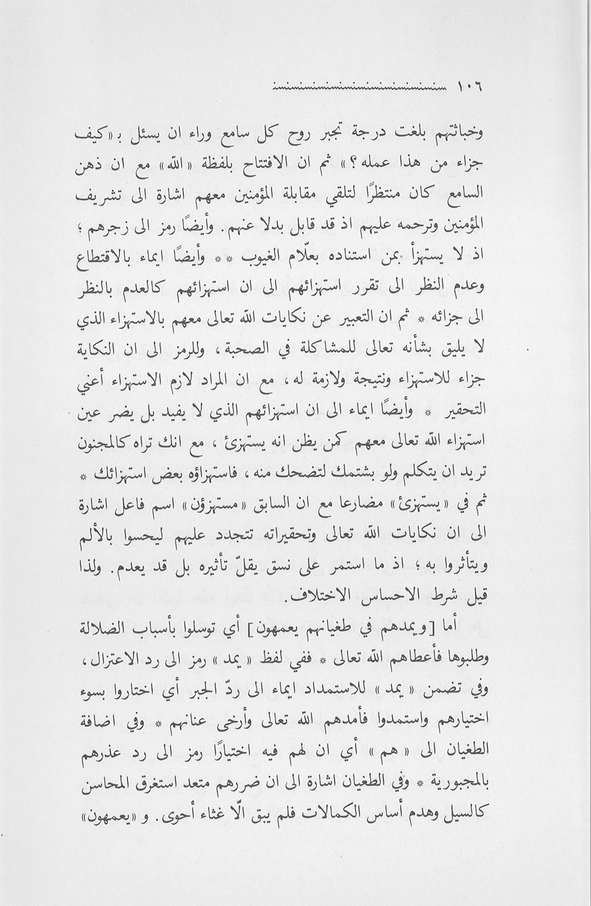 ١٠٦
وخباثتهم بلغت درجة تجبر روح كل سامع وراء ان يسئل بـ «كيف
جزاء من هذا عمله؟» ثم ان الافتتاح بلفظة «الله» مع ان ذهن
السامع كان منتظرًا لتلقي مقابلة المؤمنين معهم اشارة الى تشريف
المؤمنين وترحمه عليهم اذ قد قابل بدلا عنهم. وأيضًا رمز الى زجرهم؛
اذ لا يستهزأ بمن استناده بعلّام الغيوب ** وأيضًا ايماء بالاقتطاع
وعدم النظر الى تقرر استهزائهم الى ان استهزائهم كالعدم بالنظر
الى جزائه * ثم ان التعبير عن نكايات الله تعالى معهم بالاستهزاء الذي
لا يليق بشأنه تعالى للمشاكلة في الصحبة، وللرمز الى ان النكاية
جزاء للاستهزاء ونتيجة ولازمة له، مع ان المراد لازم الاستهزاء أعني
التحقير * وأيضًا ايماء الى ان استهزائهم الذي لا يفيد بل يضر عين
استهزاء الله تعالى معهم كمن يظن انه يستهزئ، مع انك تراه كالمجنون
تريد ان يتكلم ولو بشتمك لتضحك منه، فاستهزاؤه بعض استهزائك *
ثم في «يستهزئ» مضارعا مع ان السابق «مستهزؤن» اسم فاعل اشارة
الى ان نكايات الله تعالى وتحقيراته تتجدد عليهم ليحسوا بالألم
ويتأثروا به؛ اذ ما استمر على نسق يقلّ تأثيره بل قد يعدم. ولذا
قيل شرط الاحساس الاختلاف.
أما [ويمدهم في طغيانهم يعمهون] أي توسلوا بأسباب الضلالة
وطلبوها فأعطاهم الله تعالى * ففي لفظ «يمد» رمز الى رد الاعتزال،
وفي تضمن «يمد» للاستمداد ايماء الى ردّ الجبر أي اختاروا بسوء
اختيارهم واستمدوا فأمدهم الله تعالى وأرخى عنانهم * وفي اضافة
الطغيان الى «هم» أي ان لهم فيه اختيارًا رمز الى رد عذرهم
بالمجبورية * وفي الطغيان اشارة الى ان ضررهم متعد استغرق المحاسن
كالسيل وهدم أساس الكمالات فلم يبق الّا غثاء أحوى. و «يعمهون»